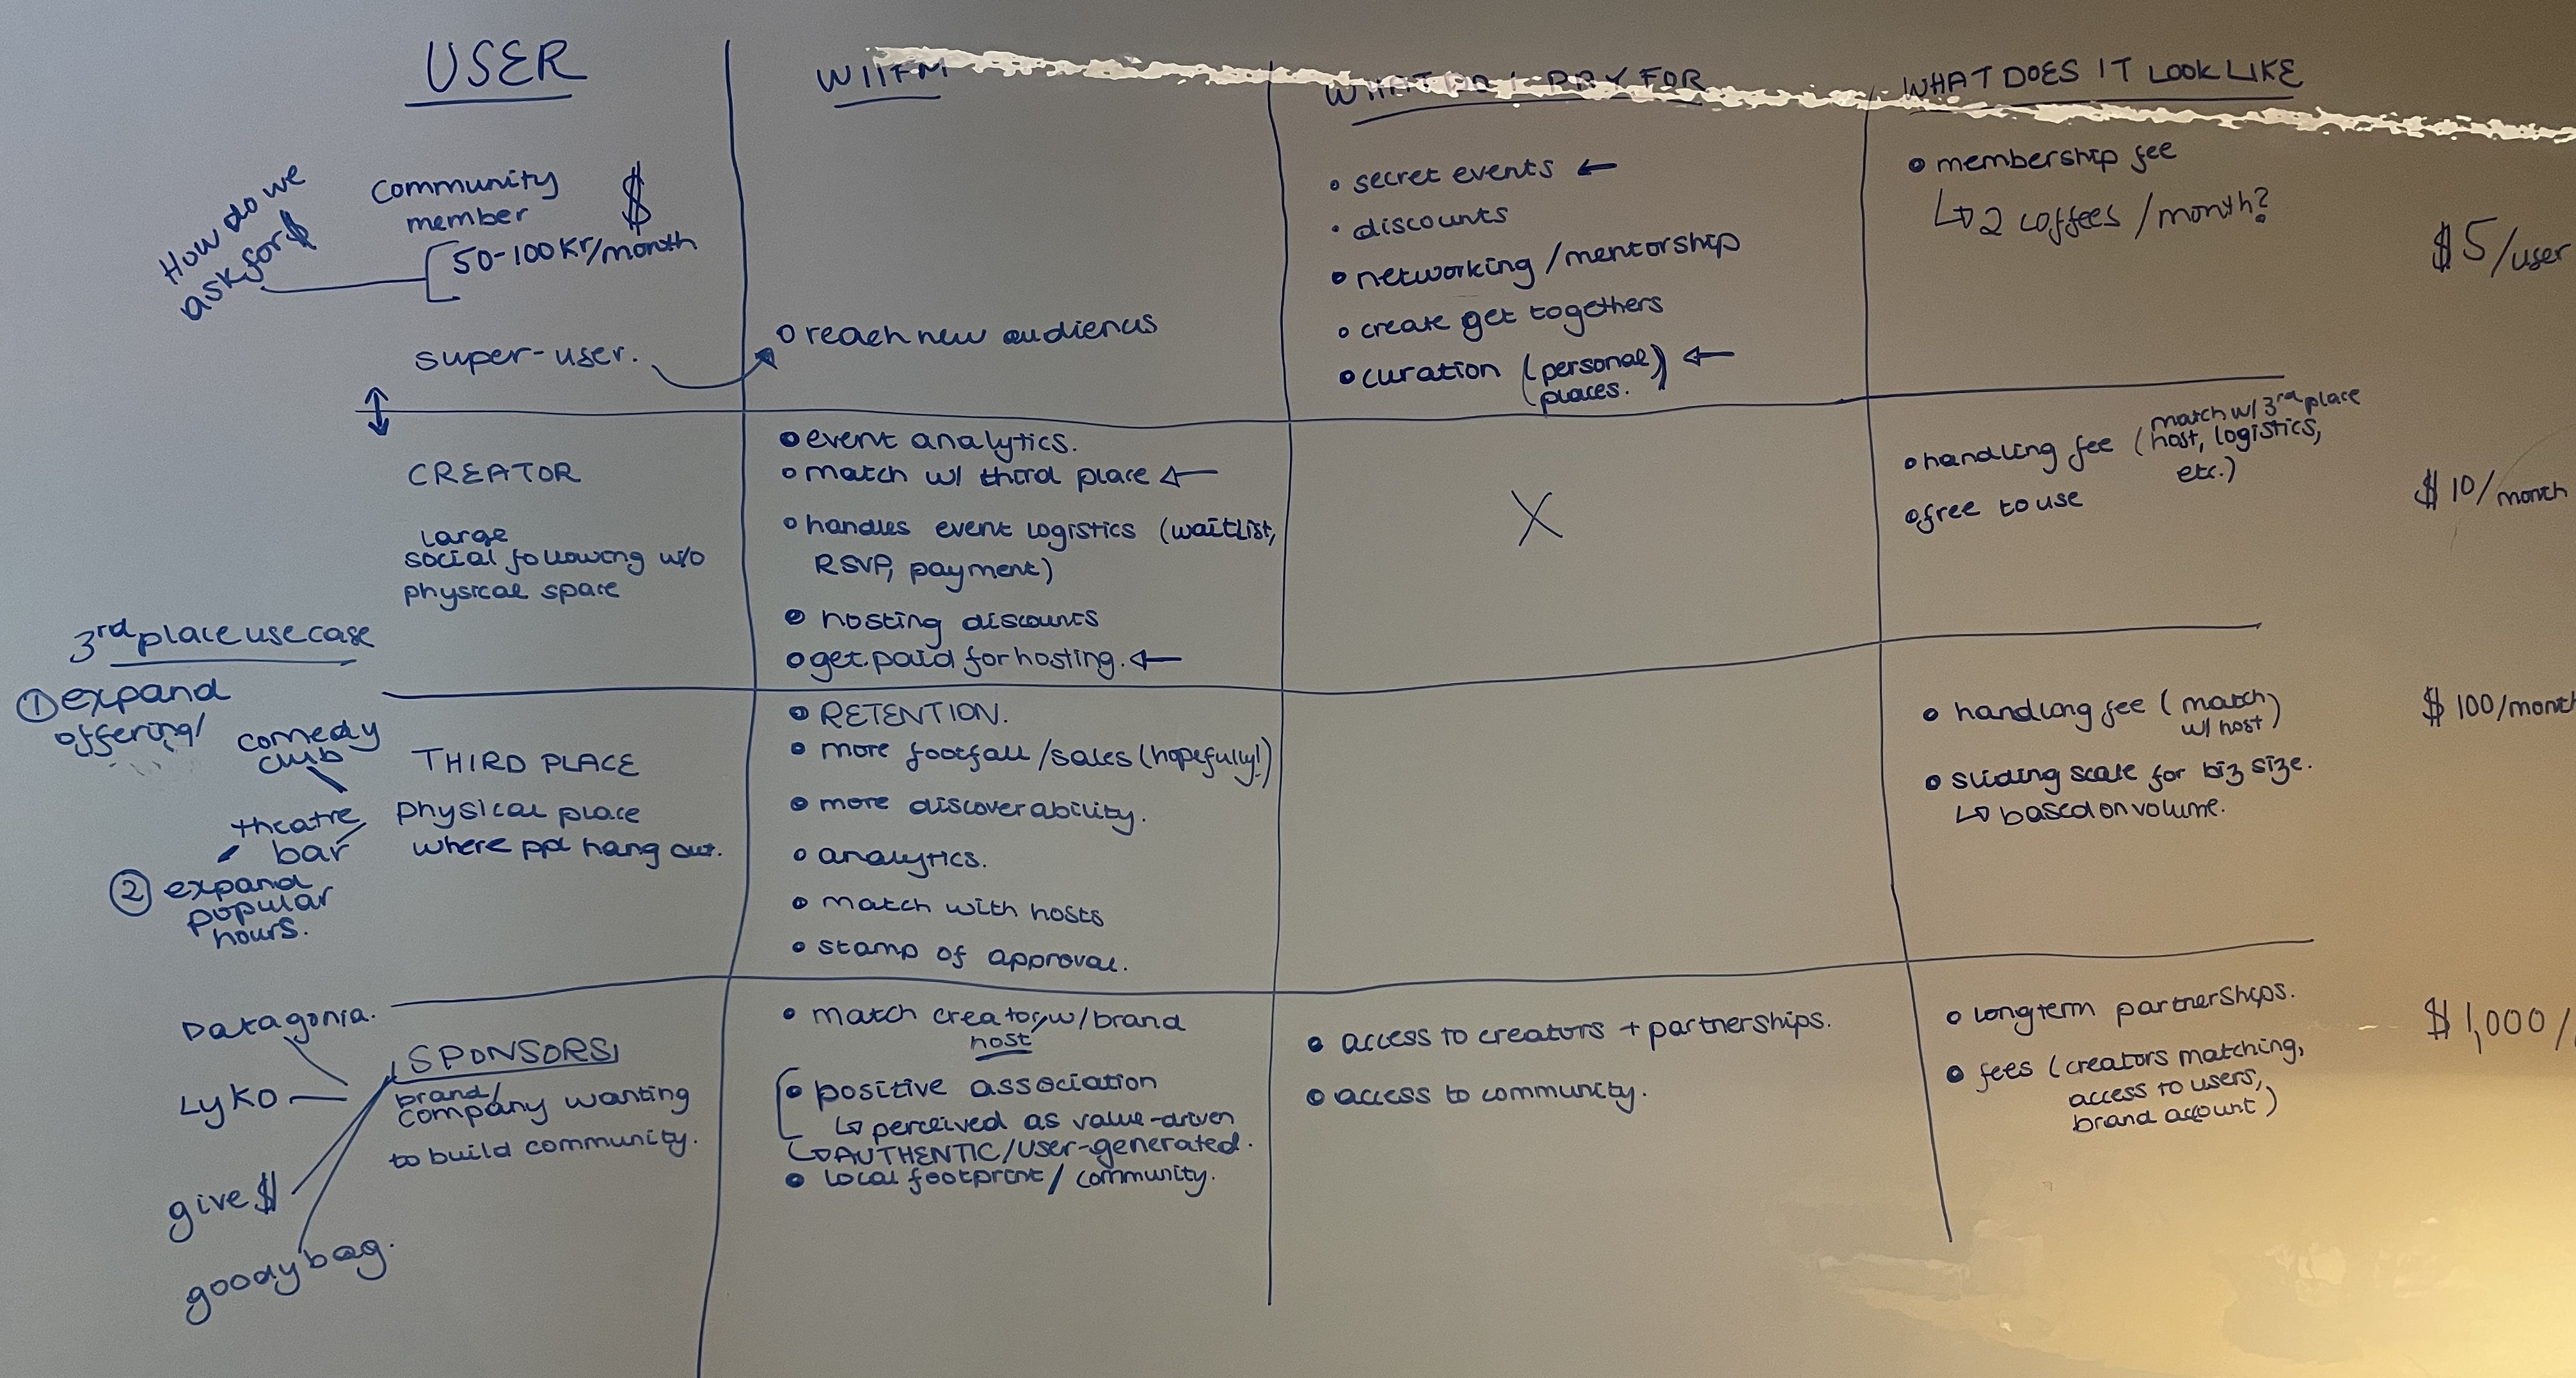 USER
WIIFM
WHAT DO I PAY FOR
WHAT DOES IT LOOK LIKE
How do we
ask for $
Community
member
$
50-100 Kr/month
super-user.
o reach new audiences
• secret events ←
• discounts
• networking / mentorship
• create get togethers
• curation (personal) ←
(places.
• membership fee
↳ 2 coffees / month?
$5/user
CREATOR
large
social following w/o
physical space
• event analytics.
• match w/ third place ←
• handles event logistics (waitlist,
RSVP, payment)
• hosting discounts
• get paid for hosting. ←
X
• handling fee (match w/ 3rd place
host, logistics,
etc.)
• free to use
$10/month
3rd place use case
① expand
offering/
comedy
club
theatre
bar
② expand
popular
hours.
THIRD PLACE
physical place
where ppl hang out.
• RETENTION.
• more footfall / sales (hopefully!)
• more discoverability.
• analytics.
• match with hosts
• stamp of approval.
• handling fee (match
w/ host)
• sliding scale for biz size.
↳ based on volume.
$100/month
Patagonia.
LyKO
give $
goodybag.
SPONSORS
brand/
company wanting
to build community.
• match creator/ w/ brand
host
• positive association
↳ perceived as value-driven
↳ AUTHENTIC/user-generated.
• local footprint / community.
• access to creators + partnerships.
• access to community.
• longterm partnerships.
• fees (creators matching,
access to users,
brand account)
$1,000/